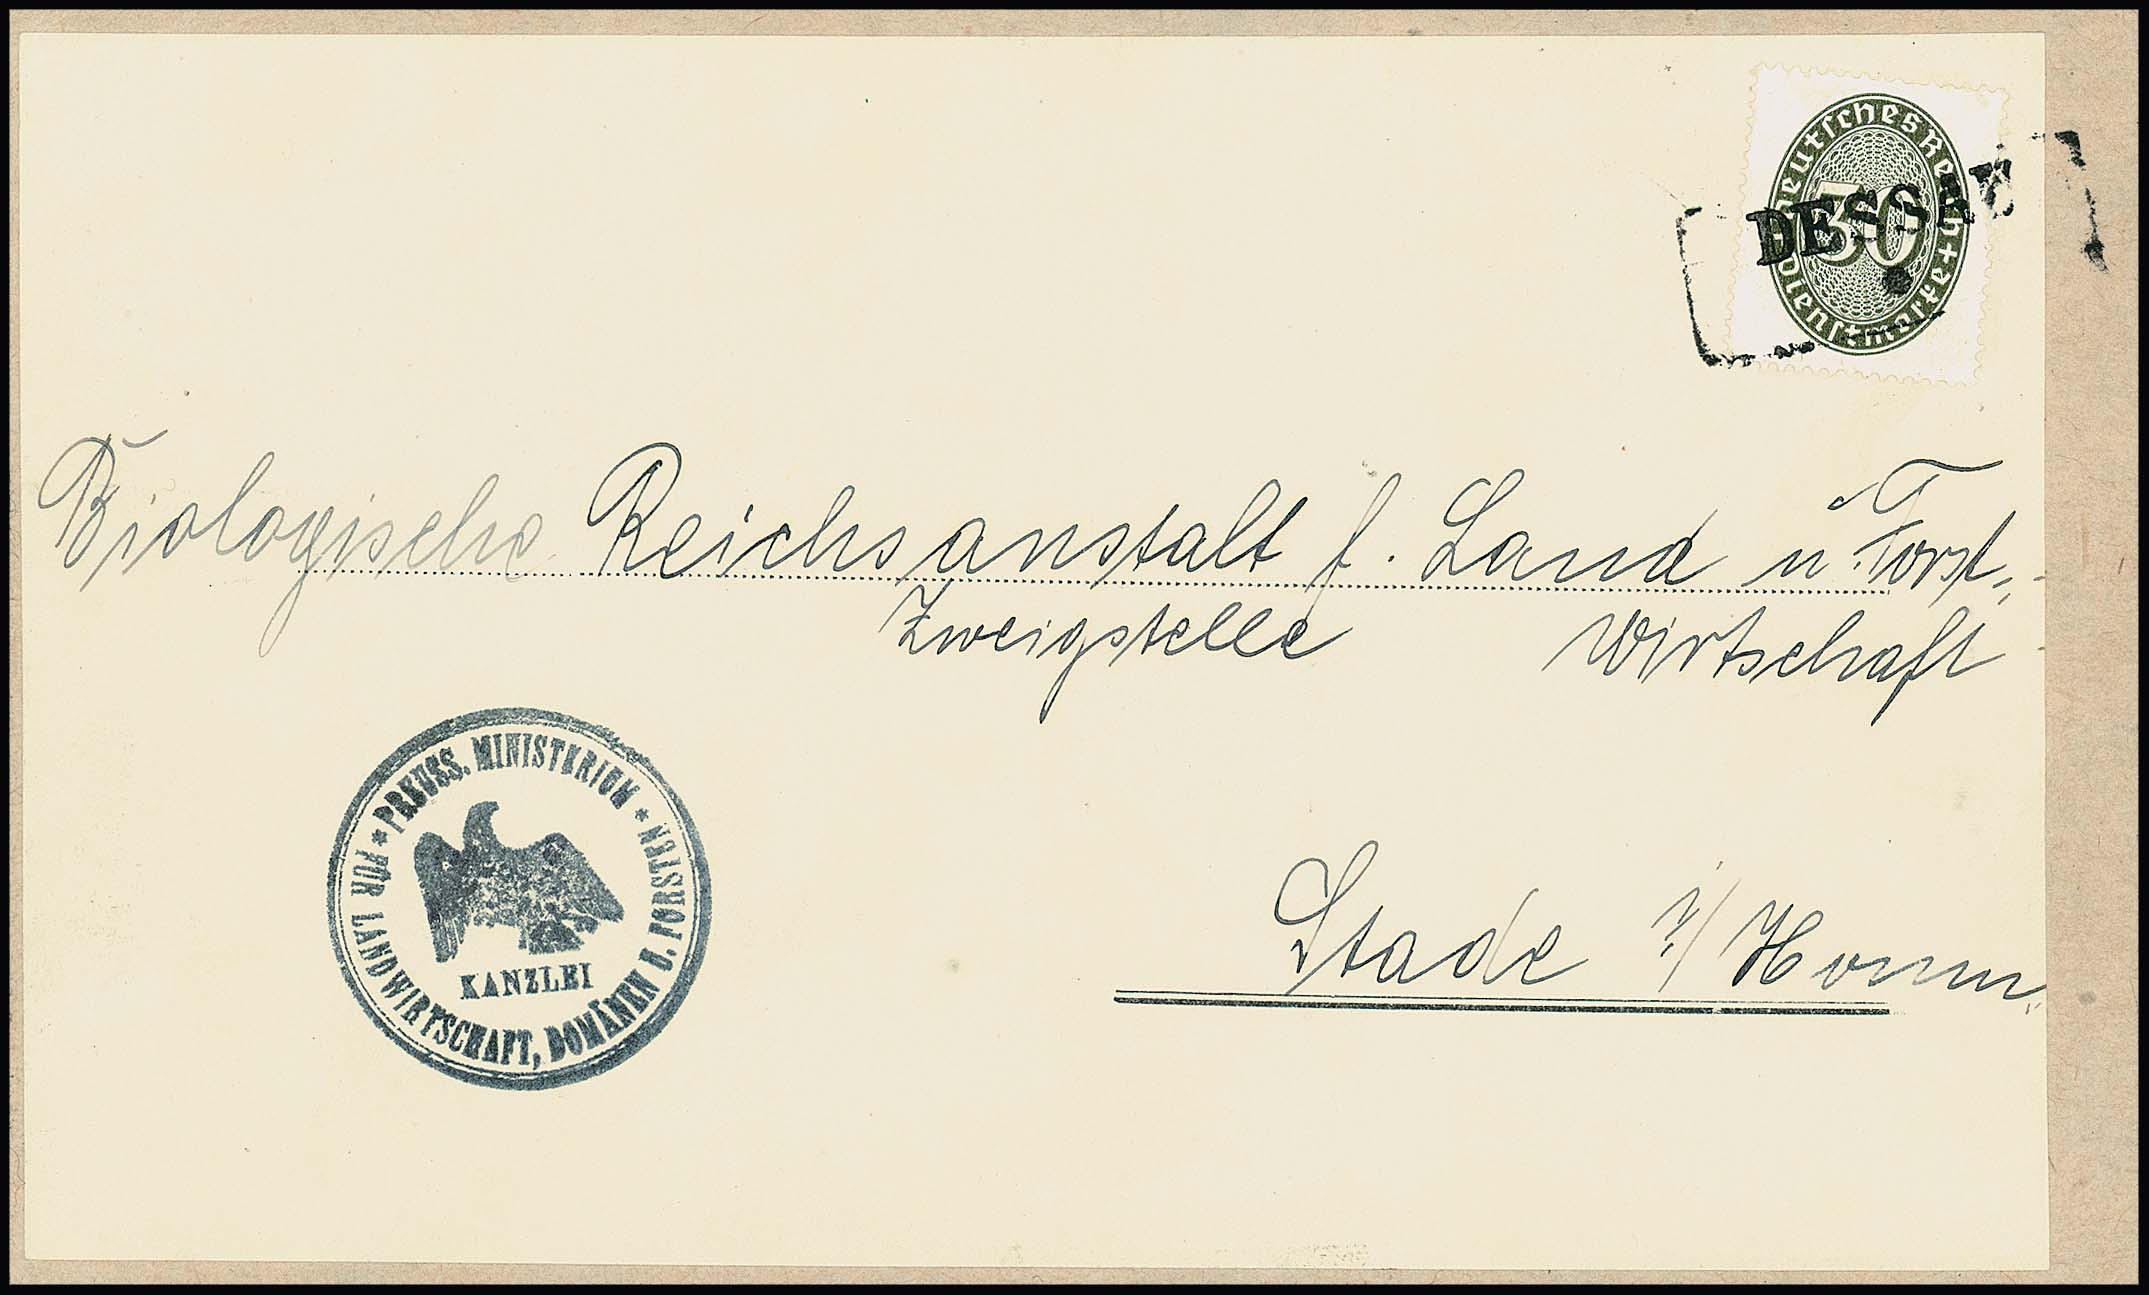 Deutsches Reich + Dienstmarke +
30
DESSAU
Biologische Reichsanstalt f. Land u. Forst-
Zweigstelle Wirtschaft
* PREUSS. MINISTERIUM *
FÜR LANDWIRTSCHAFT, DOMÄNEN U. FORSTEN
KANZLEI
Stade i/Hann.